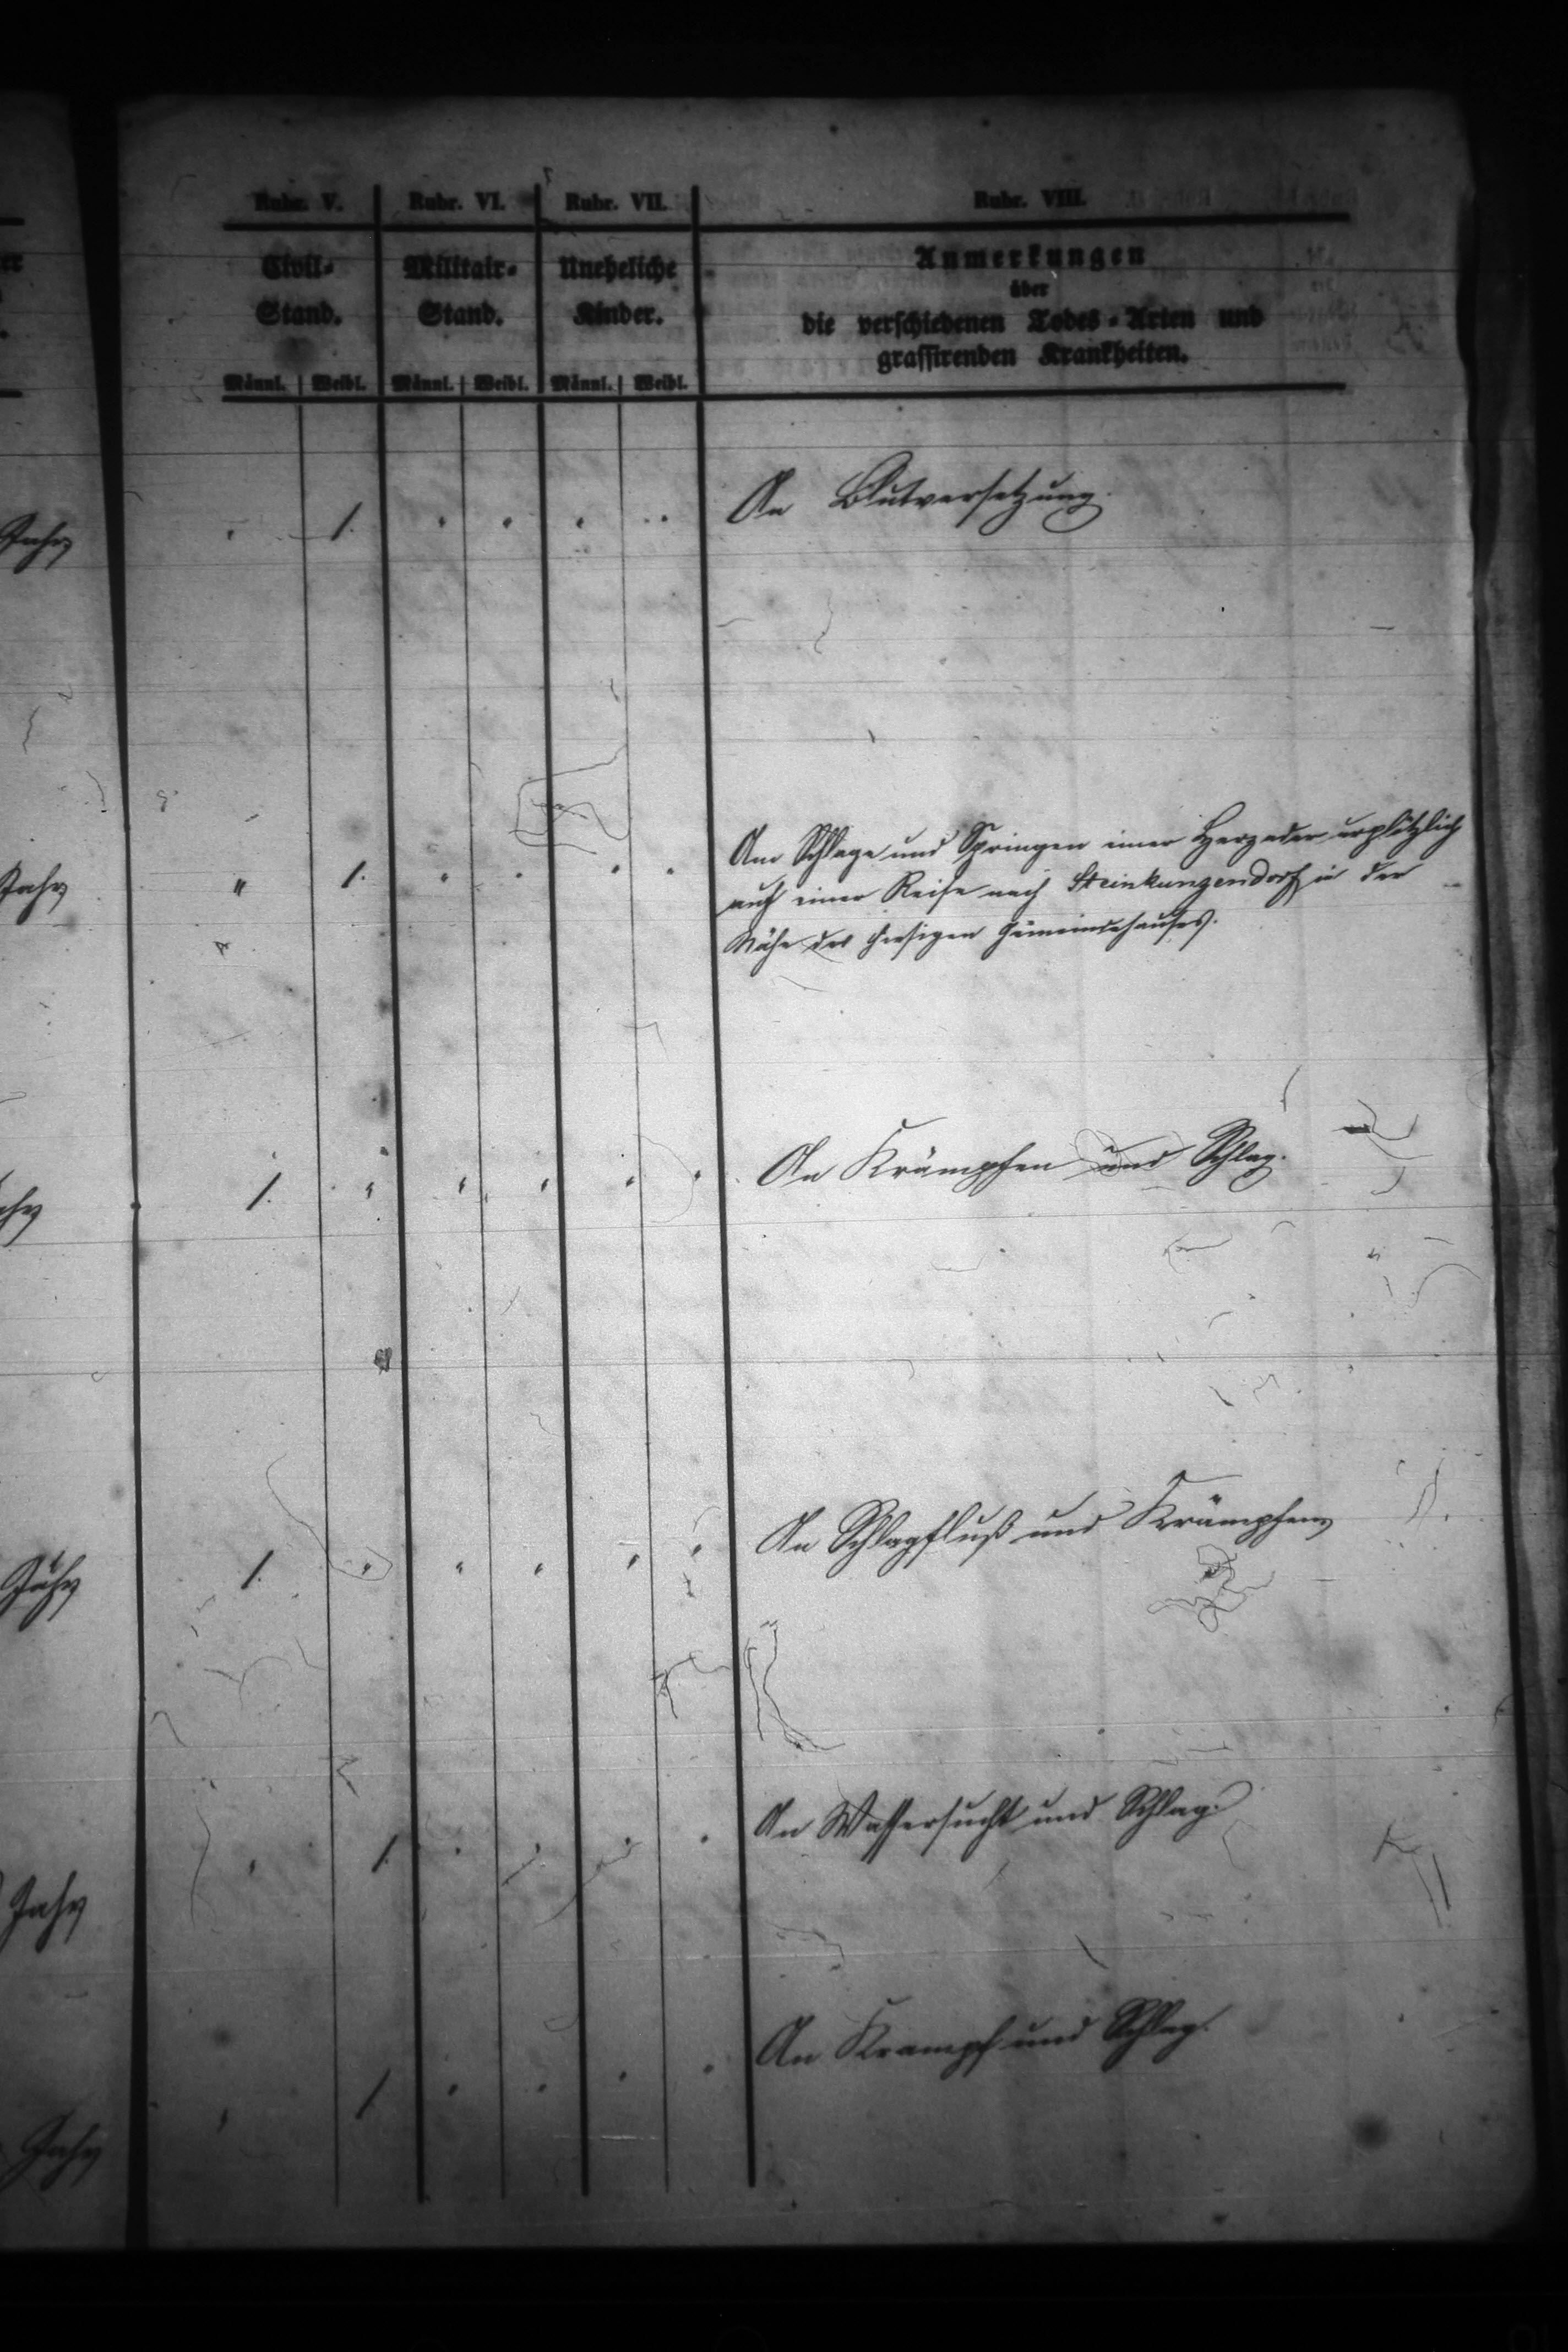 Rubr. V. Rubr. VI. Rubr. VII. Rubr. VIII.
Civil- Militair- Uneheliche Anmerkungen
Stand. Stand. Kinder. über
die verschiedenen Todes-Arten und
grassirenden Krankheiten.
Männl. Weibl. Männl. Weibl. Männl. Weibl.
Jahr " 1. " " " " An Blutversetzung.
Jahr " 1. " " " " Am Schlage und Springen einer Herzader urplötzlich
auf einer Reise nach Steinkunzendorf in der
Nähe des hiesigen Gemeindehauses.
1. " " " " " An Krämpfen und Schlag.
Jahr 1. " " " " " An Schlagfluß und Krämpfen
Jahr " 1. " " " " An Wassersucht und Schlag.
Jahr " 1 " " " " An Krampf und Schlag.